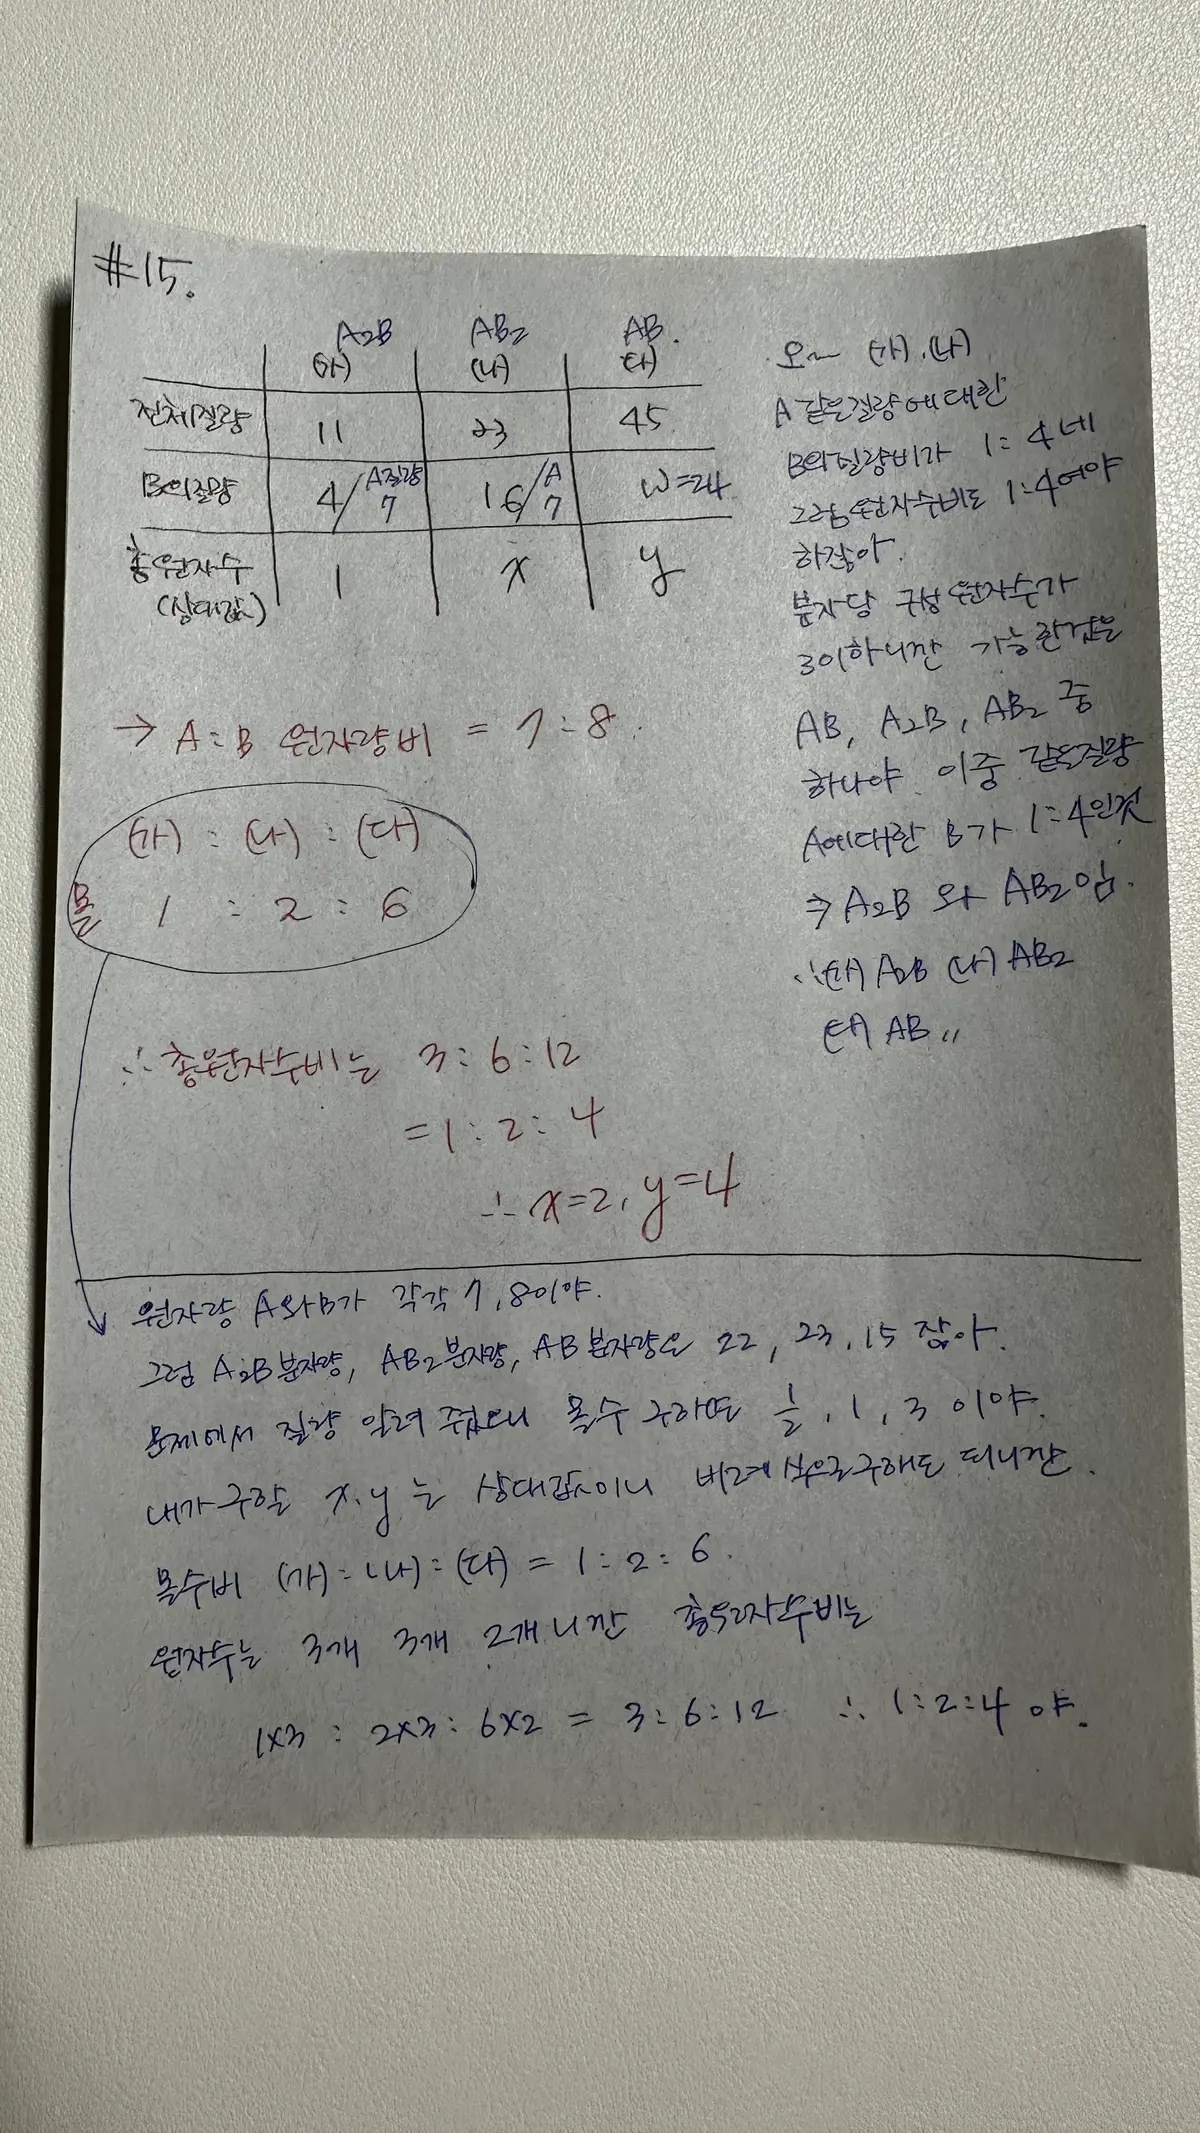 #15.
A₂B AB₂ AB.
(가) (나) (다)
전체질량 11 23 45
B의질량 4/A질량 7 16/A 7 W=24
총원자수 1 x y
(상대값)
오~ (가).(나)
A같은질량에대한
B의질량비가 1:4네
그럼원자수비도 1:4여야
하잖아.
분자당 구성원자수가
3이하니깐 가능한것은
AB, A₂B, AB₂ 중
하나야. 이중 같은질량
A에대한 B가 1:4인것
⇒ A₂B 와 AB₂임.
∴(가) A₂B (나) AB₂
(다) AB 〃
→ A:B 원자량비 = 7:8.
(가) : (나) : (다)
몰 1 : 2 : 6
∴ 총원자수비는 3:6:12
= 1:2:4
∴ x=2, y=4
원자량 A와B가 각각 7,8이야.
그럼 A₂B분자량, AB₂분자량, AB분자량은 22, 23, 15 잖아.
문제에서 질량 알려 줬으니 몰수 구하면 ½, 1, 3 이야.
내가구할 x.y 는 상대값이니 비례식으로구해도 되니깐.
몰수비 (가):(나):(다) = 1:2:6.
원자수는 3개 3개 2개니깐 총원자수비는
1×3 : 2×3 : 6×2 = 3:6:12 ∴ 1:2:4 야.